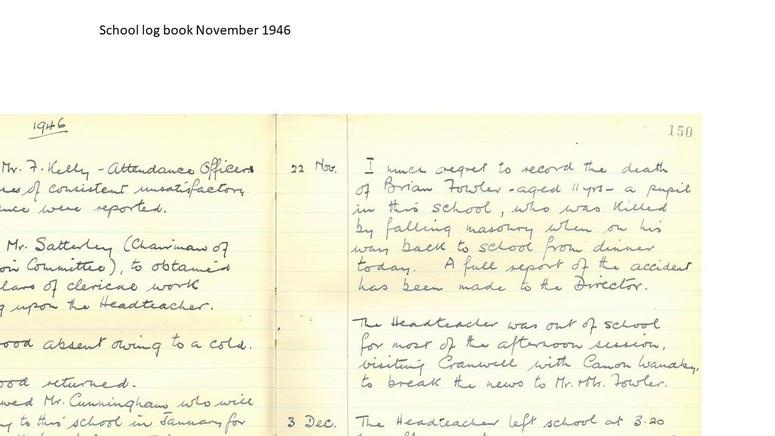 School log book November 1946
1946
Mr. F. Kelly - Attendance Officers
of consistent unsatisfactory
were reported.
Mr. Satterley (Chairman of
Committee), to obtained
of clerical work
upon the Headteacher.
absent owing to a cold.
returned.
Mr. Cunningham who will
to this school in January for
150
22 Nov.
I much regret to record the death
of Brian Fowler - aged 11 yrs - a pupil
in this school, who was killed
by falling masonry when on his
way back to school from dinner
today. A full report of the accident
has been made to the Director.
The Headteacher was out of school
for most of the afternoon session,
visiting Cranwell with Canon
to break the news to Mr. Mrs. Fowler.
3 Dec.
The Headteacher left school at 3.20